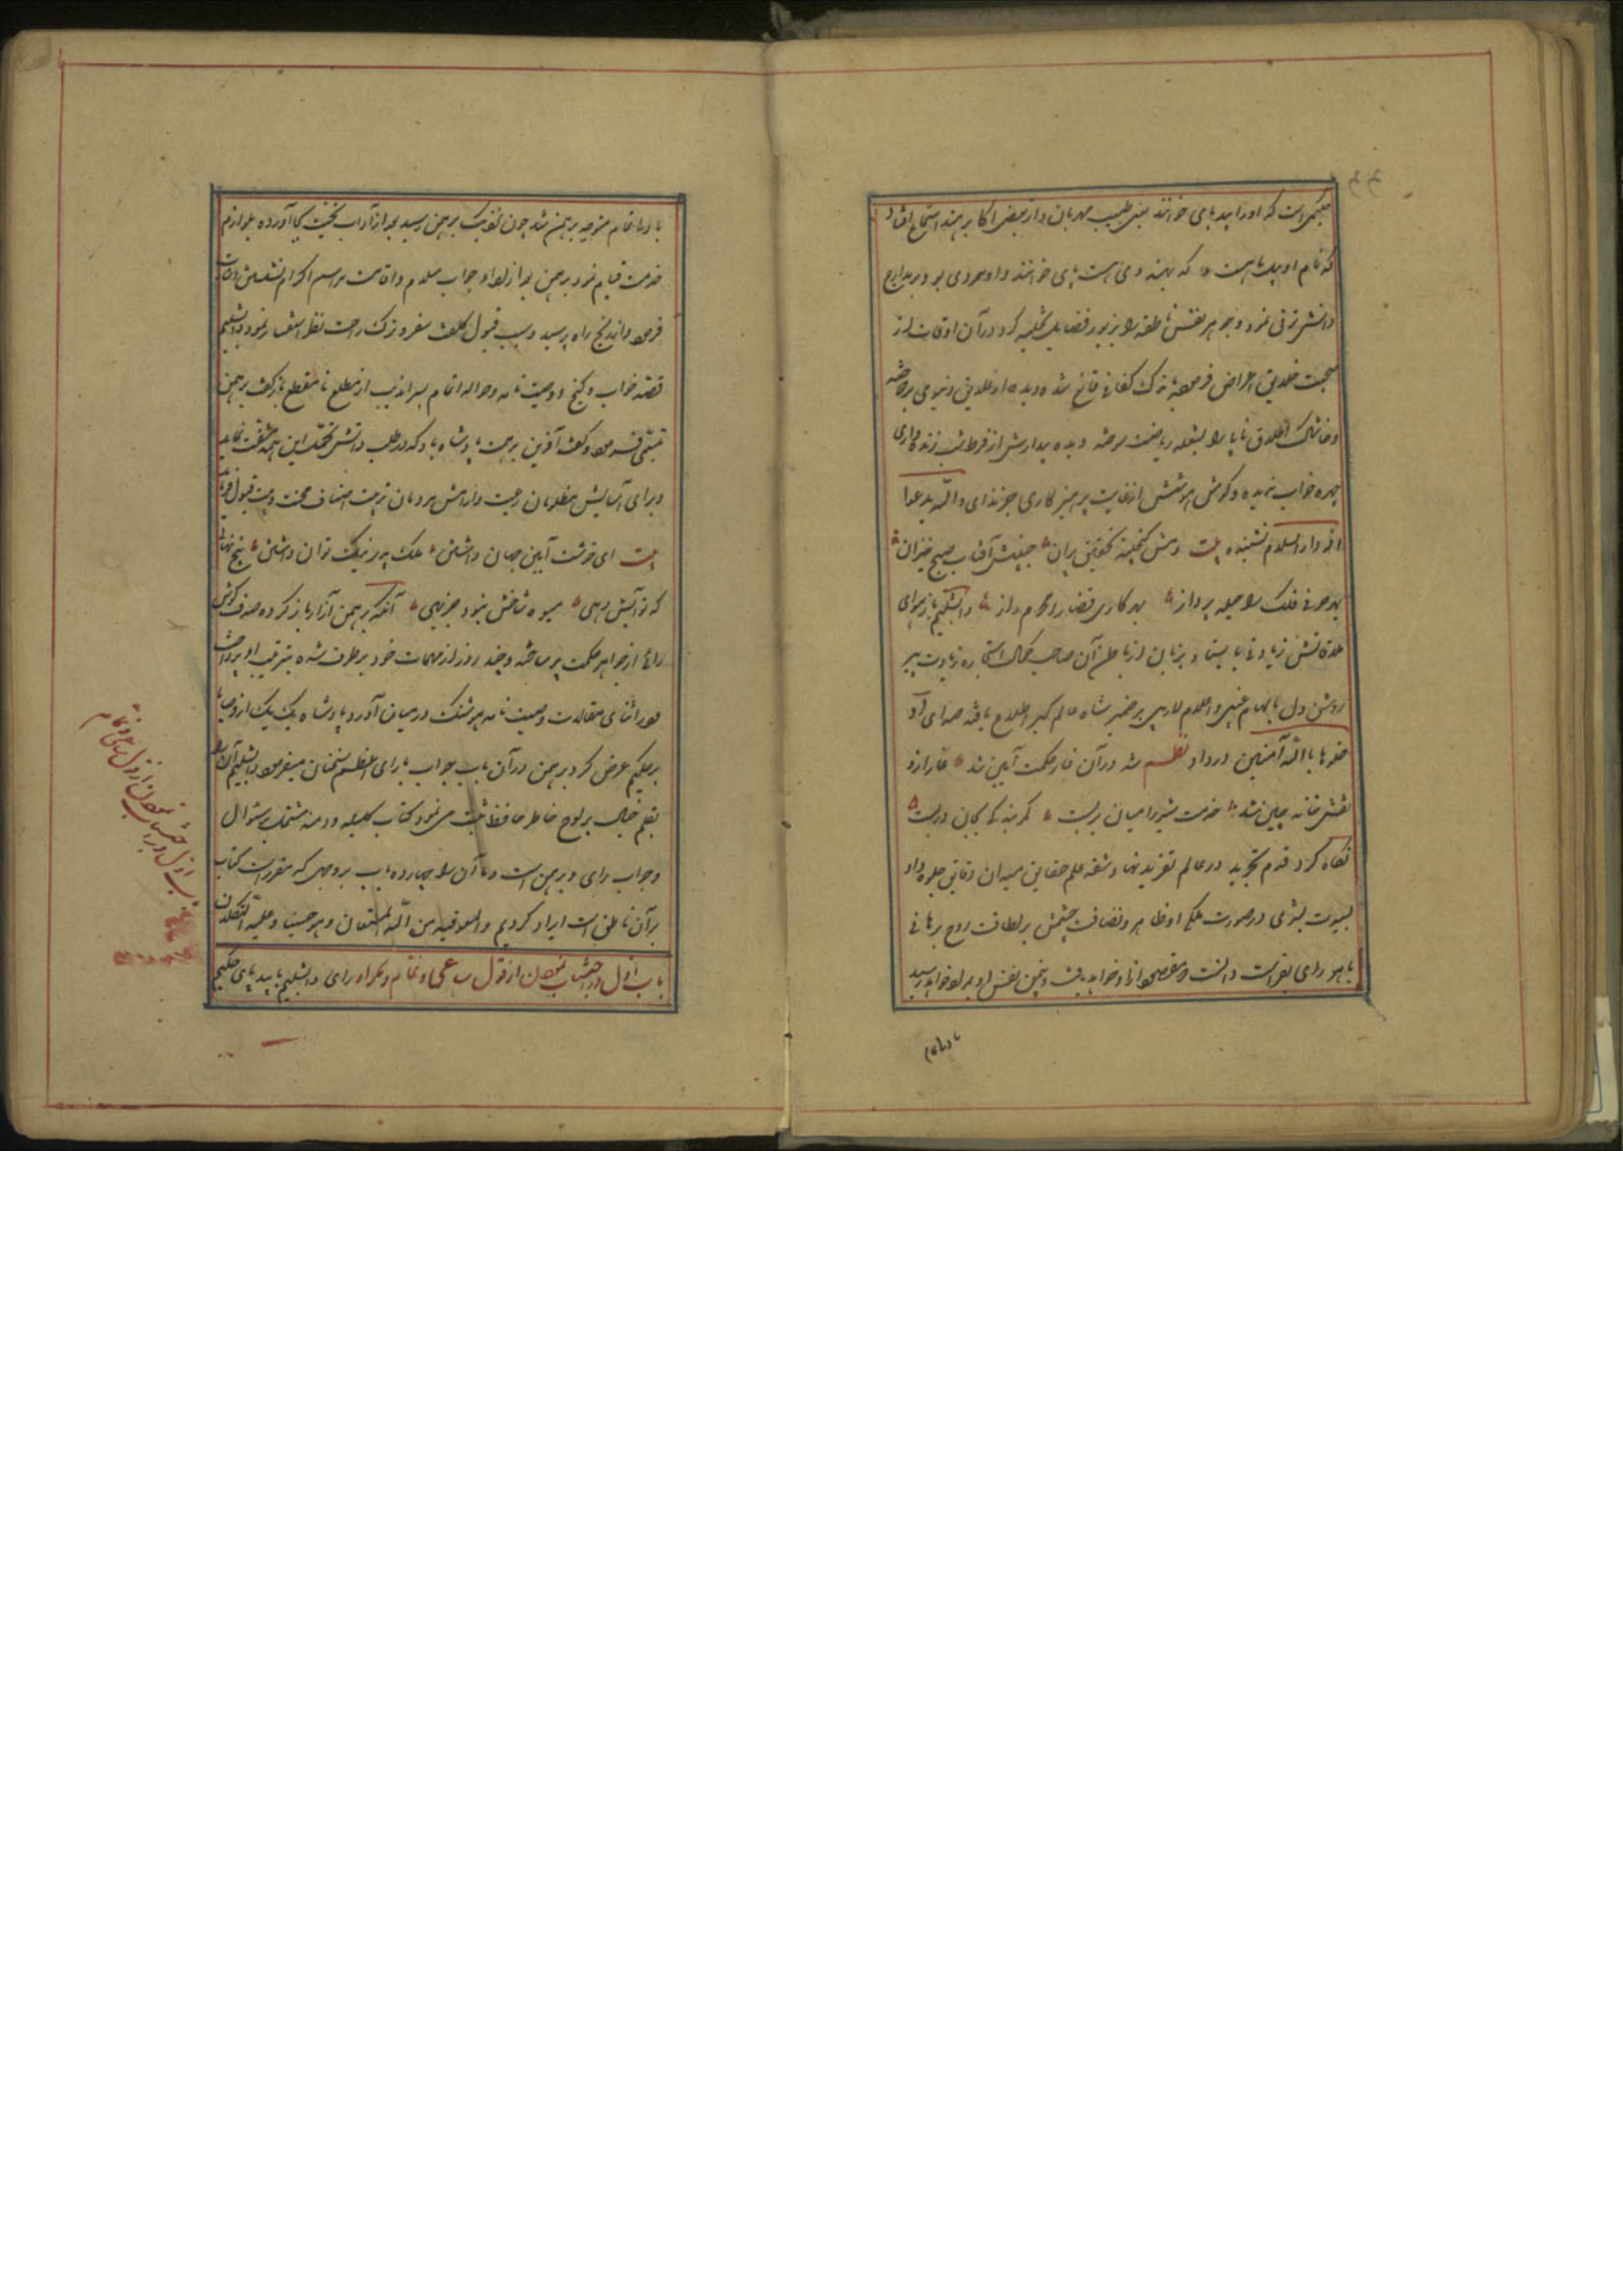 حکیمی است که او را بیدپای خوانند یعنی طبیب مهربان و از بعضی اکابر هند استماع افتاد
که نام او پیلپای است که بهندوی هستی پای خوانند و او مردی بود بر مدارج
دانش ترقی نموده و جوهر نفس ناطقه را بزیور فضایل تحلیه کرده در آن اوقات از
صحبت خلایق اعراض فرموده بترک کفافی قانع شده دیده از علایق دنیوی بردوخته
و خاشاک اخلاق را بشعله ریاضت سوخته دیده بیدارش از فرط شب زنده داری
چهره خواب ندیده و گوش هوشش از غایت پرهیزکاری جز ندای والله یدعوا
الی دار السلام نشنیده بیت دمش گنجینه تحقیق یزدان جبینش آفتاب صبح خیزان
بهر حرفی فلک را حیله پرداز بهر کاری قضا را محرم راز دابشلیم بازهوای
ملاقاتش زیادتی بایستاد و بزبان از باطن آن صاحب کمال استجازه زیارت پیر
روشن دل بالهام غیبی و اعلام لاریبی بر ضمیر شاه عالم گیر اطلاع یافته صدای
ادخلوها بسلام آمنین در داد نظم شه در آن غار حکمت آیین شد غار ازو
نقش خانه چین شد خدمت پیر را میان بربست کمر بندگی بجان دربست
نگاه کرد قدم تجرید در عالم تفرید نهاده شقه علم حقایق میدان دقایق جلوه داده
بسیرت بشری در صورت ملکی او ظاهر و نظافت جسمش بر لطافت روح برهانی
باهر رای بفراست دانست که مقصود از او خواهد یافت و بیمن نفس او بمراد خواهد رسید
با ادب تمام
با ادب تمام متوجه برهمن شد چون نزدیک برهمن رسید بعد از آداب تحیت بجا آورده بلوازم
خدمت قیام نمود برهمن بعد از ادای جواب سلام و اقامت مراسم اکرام بنشستن اشارت
فرمود و از رنج راه پرسید و سبب قبول کلفت سفر و ترک راحت حضر استفسار نمود دابشلیم
قصه خواب و گنج و وصیت نامه و حواله اتمام بسراندیب از مطلع تا مقطع بازگفت برهمن
تبسمی فرمود و گفت آفرین بر همت پادشاه باد که در طلب دانش تحمل این همه مشقت نماید
و برای آسایش مظلومان رعیت و آرامش مردمان تربیت اصناف محنت و مشقت قبول فرماید
بیت ای خوشت آیین جهان داشتن ملک بدین نیک توان داشتن بیخ نهالی
که تو آبش دهی میوه شاخش نبود جز بهی آنگه برهمن سر درج اسرار باز کرده صدف گوش
رای را از جواهر حکمت پر ساخت و چند روز از مهمات خود برطرف شده بترتیب او پرداخت
و در اثنای مقالات وصیت نامه هوشنگ در میان آورد پادشاه یک یک از وصایا
بر حکیم عرض کرد و برهمن در آن باب جواب با رای اعظم سخنان میفرمود و دابشلیم آن را
بقلم خیال بر لوح خاطر حافظ ثبت می نمود و کتاب کلیله و دمنه مشتمل بر سؤال
و جواب رای و برهمن است و ما آن را بچهارده باب بر وجهی که مقررات کتاب
بر آن ناطق است ایراد کردیم والتوفیق من الله المستعان و هو حسبنا و علیه التکلان
باب اول در اجتناب نمودن از قول ساعی و نمام و مکر او رای دابشلیم با بیدپای حکیم
باب اول در اجتناب نمودن از قول ساعی و نمام